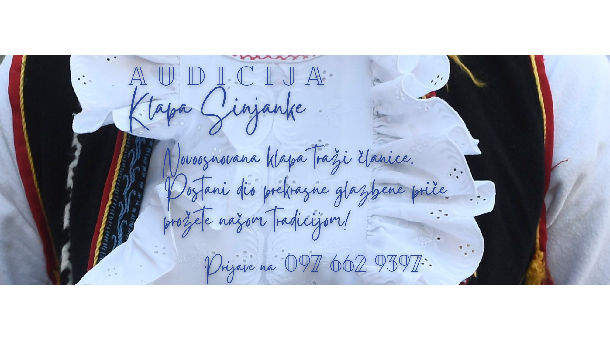 AUDICIJA
Klapa Sinjanke
Novoosnovana klapa traži članice.
Postani dio prekrasne glazbene priče
prožete našom tradicijom!
Prijave na 097 662 9397